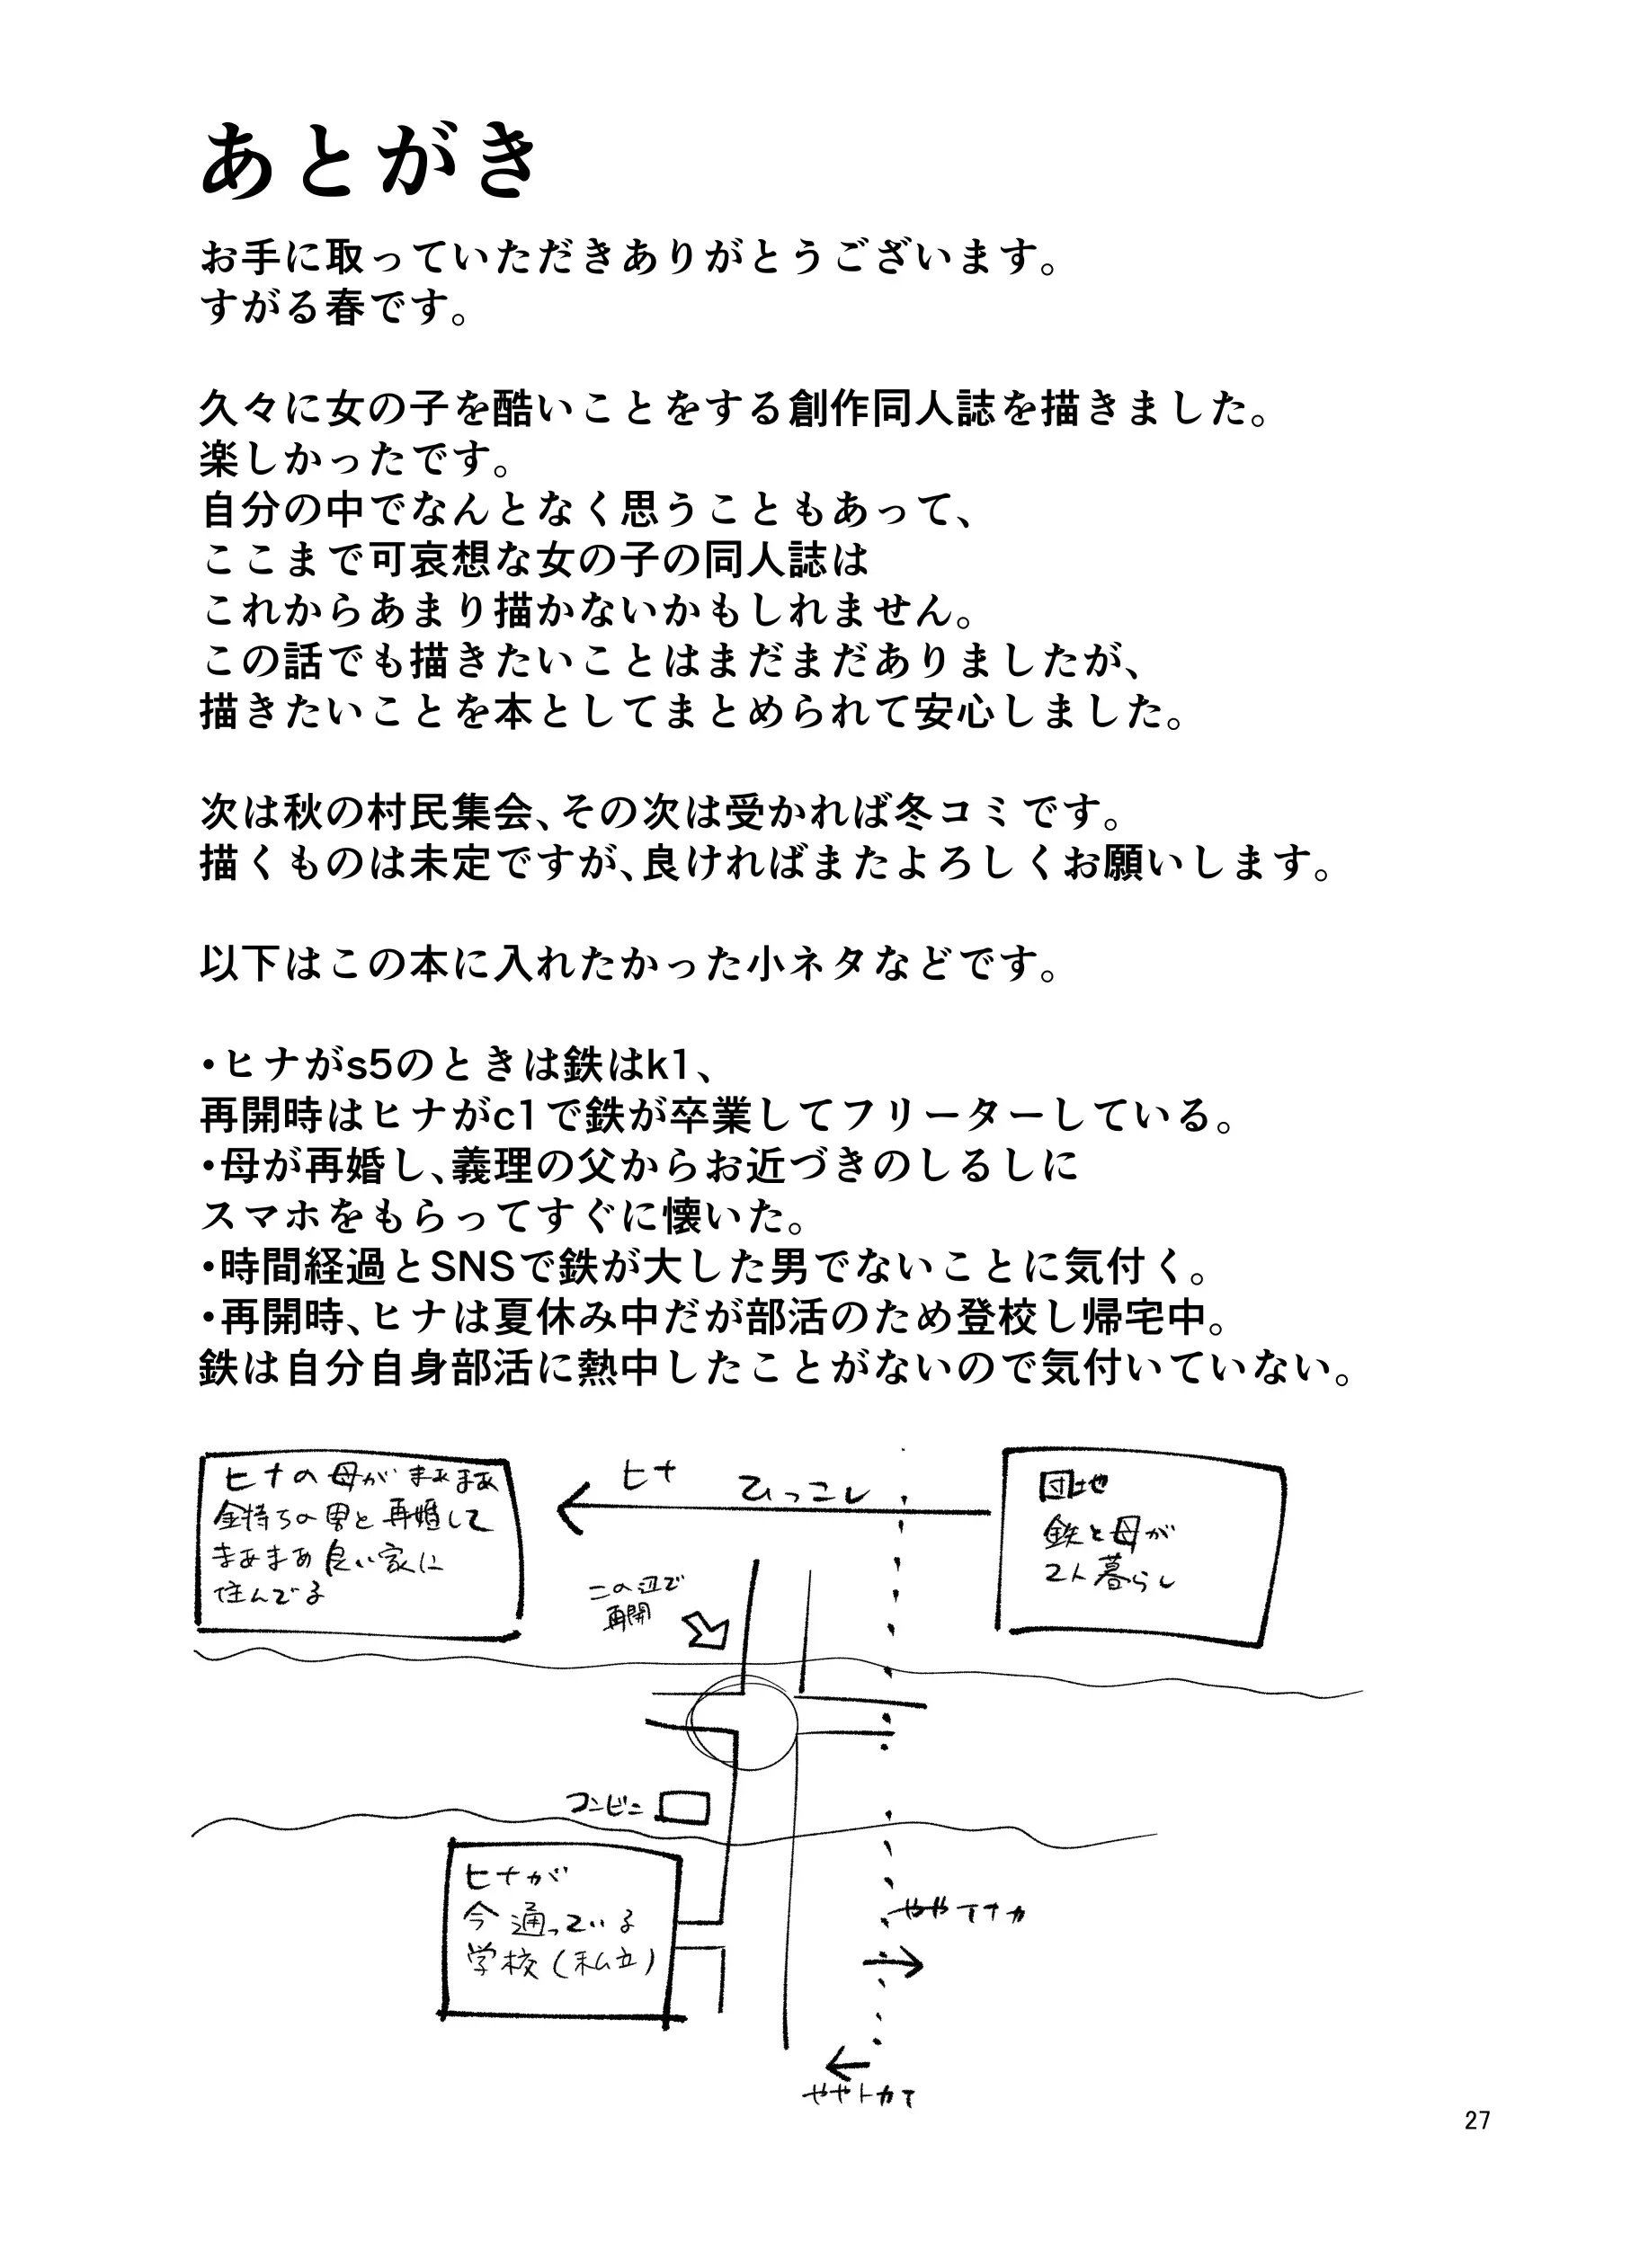 あとがき
お手に取っていただきありがとうございます。
すがる春です。
久々に女の子を酷いことをする創作同人誌を描きました。
楽しかったです。
自分の中でなんとなく思うこともあって、
ここまで可哀想な女の子の同人誌は
これからあまり描かないかもしれません。
この話でも描きたいことはまだまだありましたが、
描きたいことを本としてまとめられて安心しました。
次は秋の村民集会、その次は受かれば冬コミです。
描くものは未定ですが、良ければまたよろしくお願いします。
以下はこの本に入れたかった小ネタなどです。
・ヒナがs5のときは鉄はk1、
再開時はヒナがc1で鉄が卒業してフリーターしている。
・母が再婚し、義理の父からお近づきのしるしに
スマホをもらってすぐに懐いた。
・時間経過とSNSで鉄が大した男でないことに気付く。
・再開時、ヒナは夏休み中だが部活のため登校し帰宅中。
鉄は自分自身部活に熱中したことがないので気付いていない。
ヒナの母がまぁまあ
金持ちの男と再婚して
まあまあ良い家に
住んでる
ヒナ ひっこし
団地
鉄と母が
2人暮らし
この辺で
再開
コンビニ
ヒナが
今通っている
学校(私立)
ややイナカ
ややトカイ
27